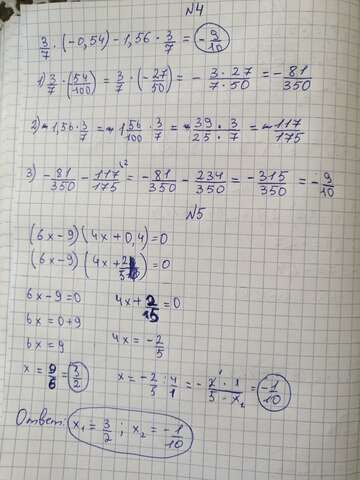 №4
3/7 · (-0,54) - 1,56 · 3/7 = -9/10
1) 3/7 · (54/100) = 3/7 · (-27/50) = - 3·27/7·50 = -81/350
2) -1,56 · 3/7 = -1 56/100 · 3/7 = -39/25 · 3/7 = -117/175
3) -81/350 - 117/175 = -81/350 - 234/350 = -315/350 = -9/10
№5
(6x-9)(4x+0,4)=0
(6x-9)(4x+2/5)=0
6x-9=0 4x+2/5=0
6x=0+9
6x=9 4x=-2/5
x=9/6=3/2 x=-2/5 : 4/1 = - 2·1/5· = -1/10
Ответ: x₁=3/2; x₂=-1/10